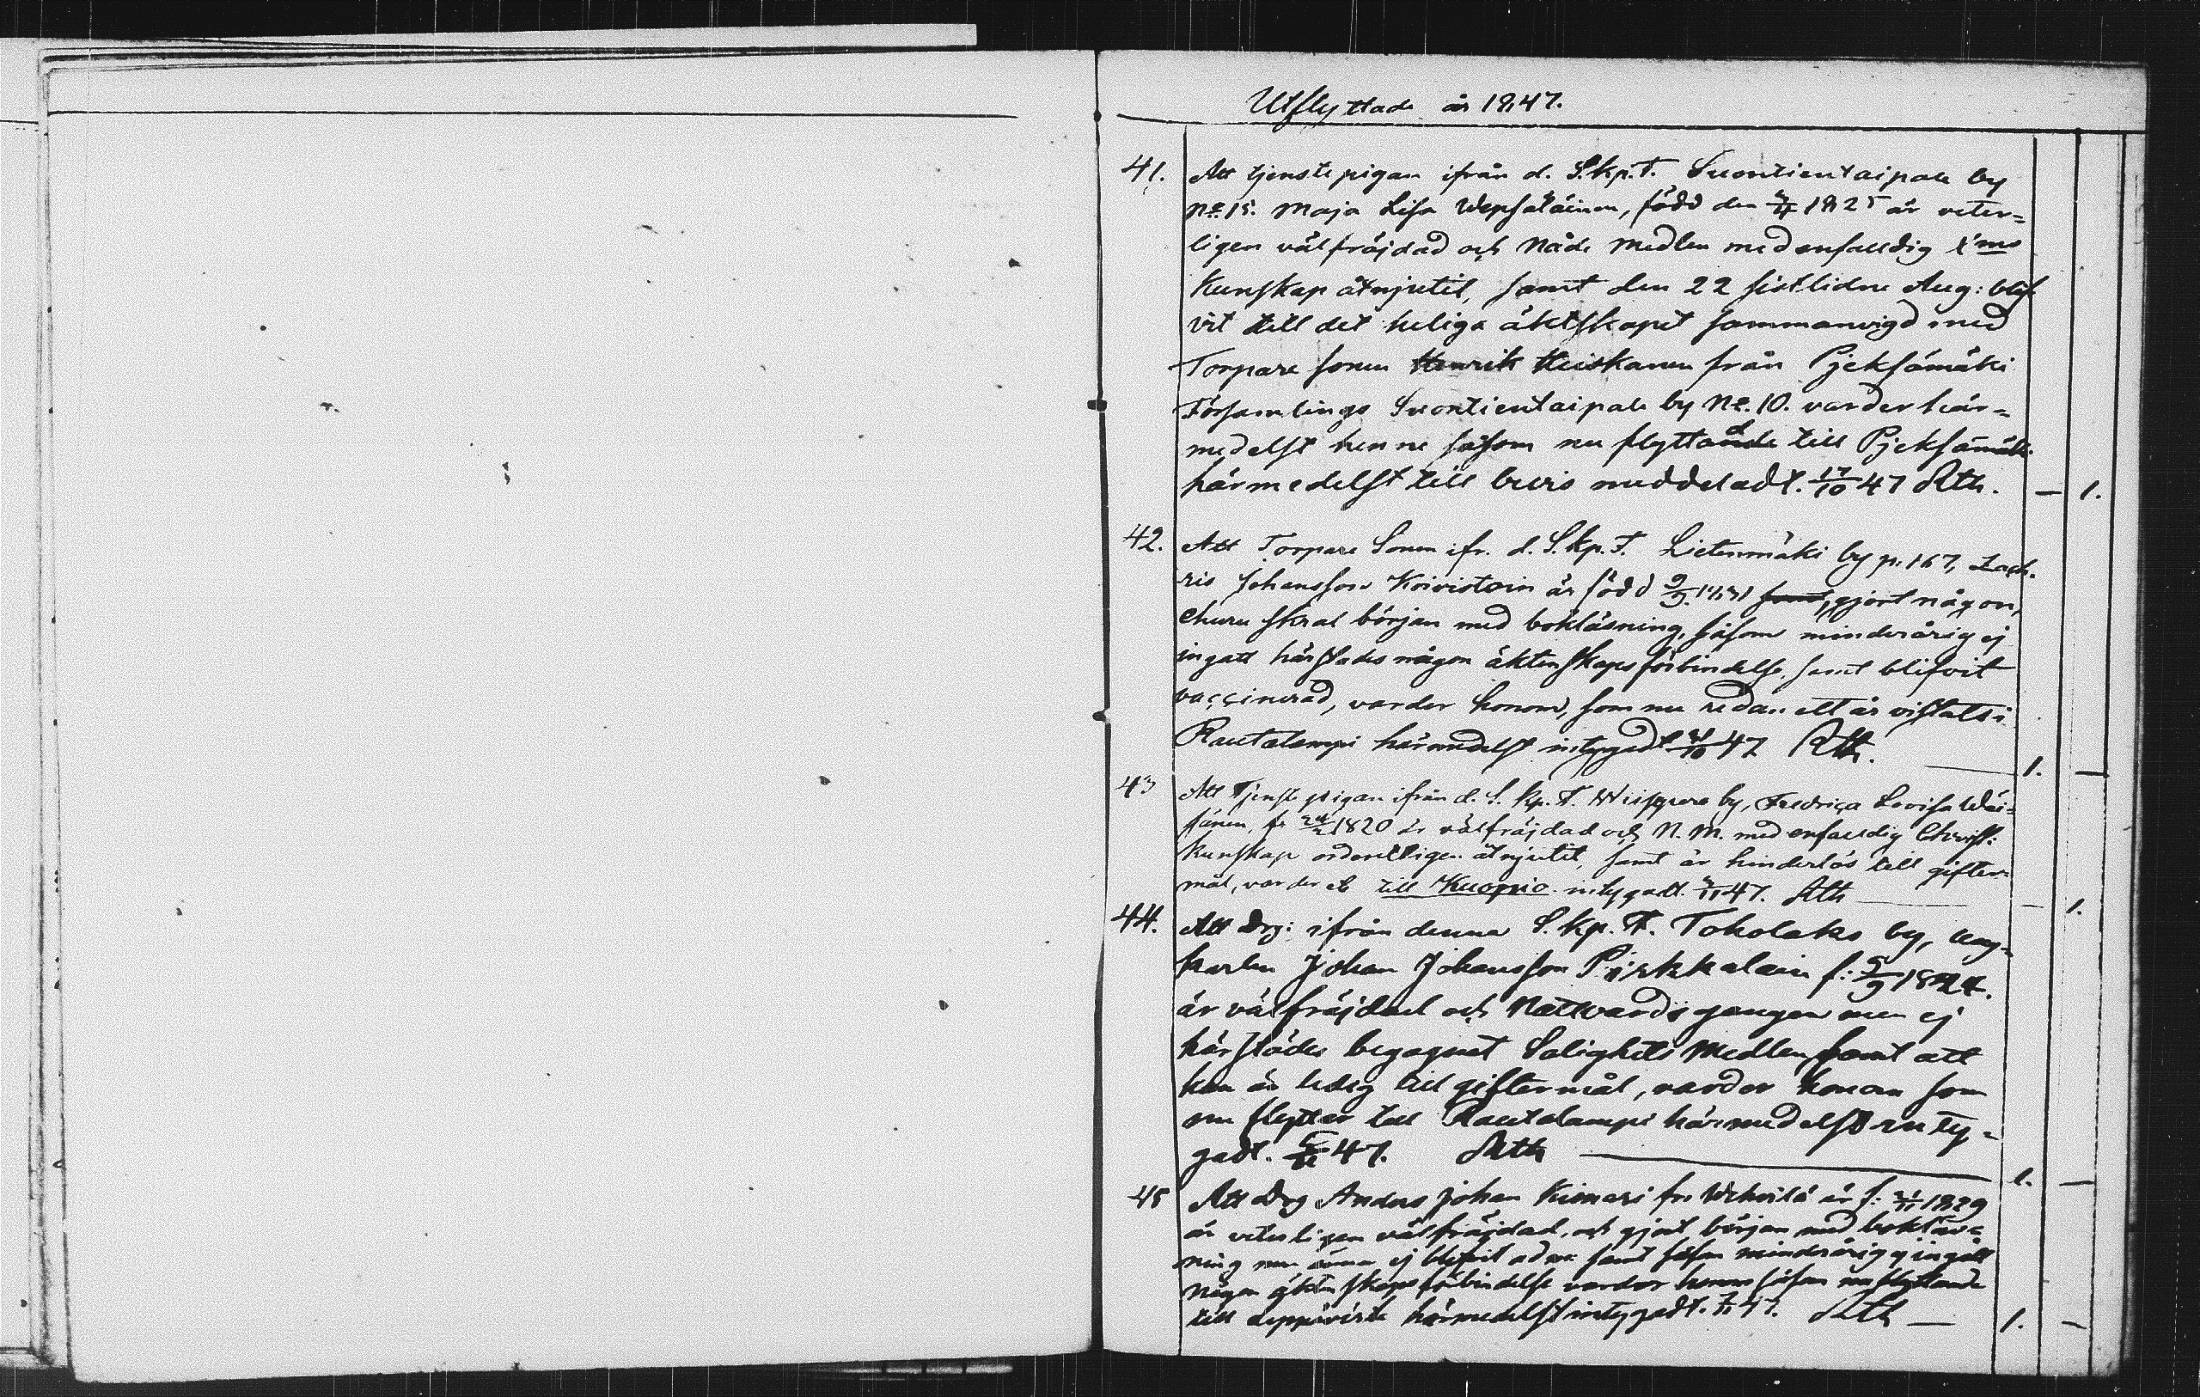 Utflyttade år 1847.
41. Att tjenstepigan ifrån d. S. kp. F. Suontientaipale by
No. 15. Maja Lisa Wepsäläinen, född den 1825 är veter=
ligen välfräjdad och Nåde Medlen med enfalldig X:ms
Kunskap åtnjutit, samt den 22 sistlidne Aug: blif
vit till det heliga äktskapet sammanvigd med
Torpare sonen Henrik Heiskanen från Pjeksämäki
Församlings Suontientaipale by No. 10. varder här=
medelst henne såsom nu flyttande till Pjeksämäki
härmedelst till bevis meddeladt. 17/10 47 Rth. — 1.
42. Att Torpare Sonen ifr. d. S. kp. F. Lietenmäki by p. 167, Zach.
ris Johansson Koivistoin är född 9/9. gjort någon,
ehuru skral början med bokläsning, såsom minderårig ej
ingått härstädes någon äktenskapsförbindelse, samt blifvit
vaccinerad, varder honom, som nu redan ett år vistats i
Rautalampi härmedelst intygadt 47 Rth. 1. —
43 Att Tjenste pigan ifrån d. S. kp. F. by, Fredrica Lovisa Wäi=
sänen, 1820 är välfräjdad och N. M. med enfalldig Christ:
Kunskap ordentligen åtnjutit, samt är hinderlös till gifter=
mål, varder till Kuopio intygadt. 47. Rth — 1.
44. Att Drg: ifrån denna S. kp. F. Toholaks by, ung=
karlen Johan Johansson Pirkkalain f: 5/9 1824.
är välfräjdad och Nattvardsgangen men ej
härstädes begagnat Salighets Medlen samt att
han är ledig till giftermål, varder honom som
nu flyttar till Rautalampi härmedelst inty=
gadt. 47. Rth 1. —
45 Att Drg Anders Johan Kinnari fr. Wehvilä är f: 1829
är veterligen välfräjdad, och gjort början med bokläs=
ning men ännu ej blifvit adm: samt såsom minderårig ej ingått
någon äktenskapsförbindelse varder honom såsom nu flyttande
till Leppävirta härmedelst intygadt. 47. Rth — 1. —